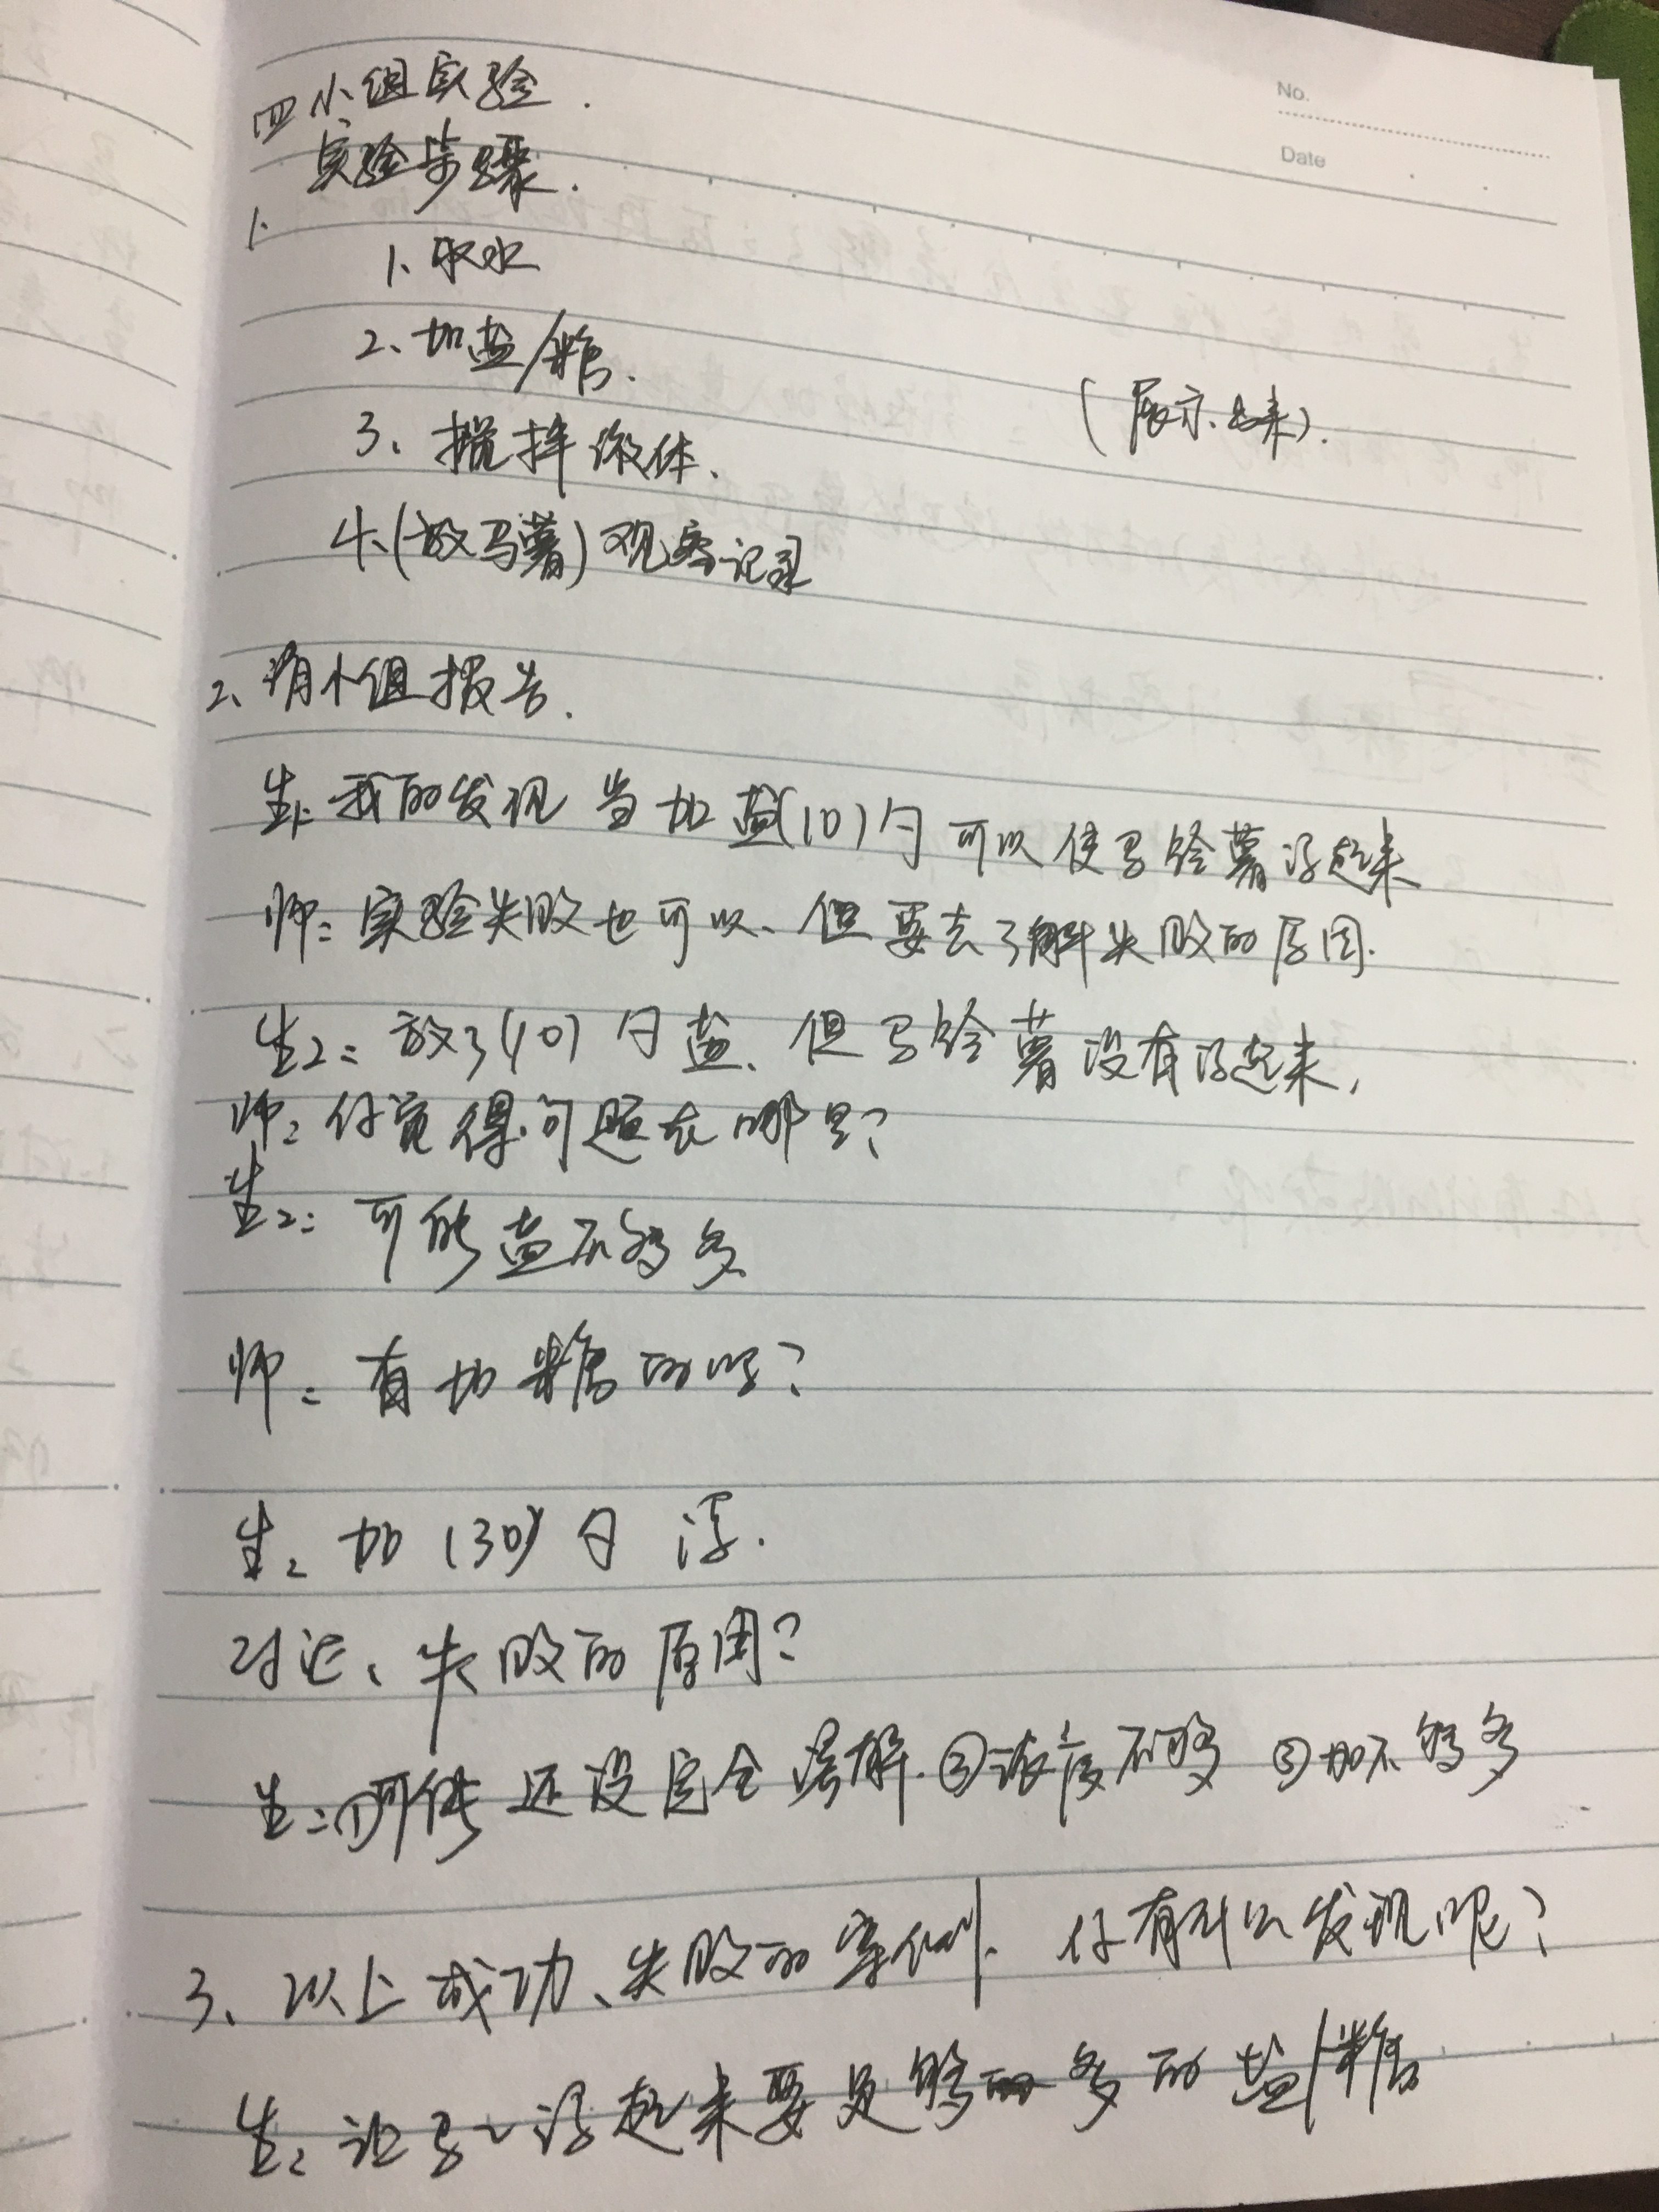 No.
Date
四 小组实验.
实验步骤.
1.
1、取水
2、加盐/糖.
(展示出来).
3、搅拌液体、
4、(放马薯)观察记录
2、请小组报告.
生1: 我的发现 当加盐(10)勺可以使马铃薯浮起来
师: 实验失败也可以、但要去了解失败的原因.
生2: 放了(10)勺盐、但马铃薯没有浮起来,
师: 你觉得问题在哪里?
生2: 可能盐不够多、
师: 有加糖的吗?
生: 加(30)勺 浮.
讨论、失败的原因?
生: ①可能还没完全溶解.②浓度不够 ③加不够多
3、以上成功、失败的案例、你有什么发现呢?
生: 让马~浮起来要足够多的盐/糖